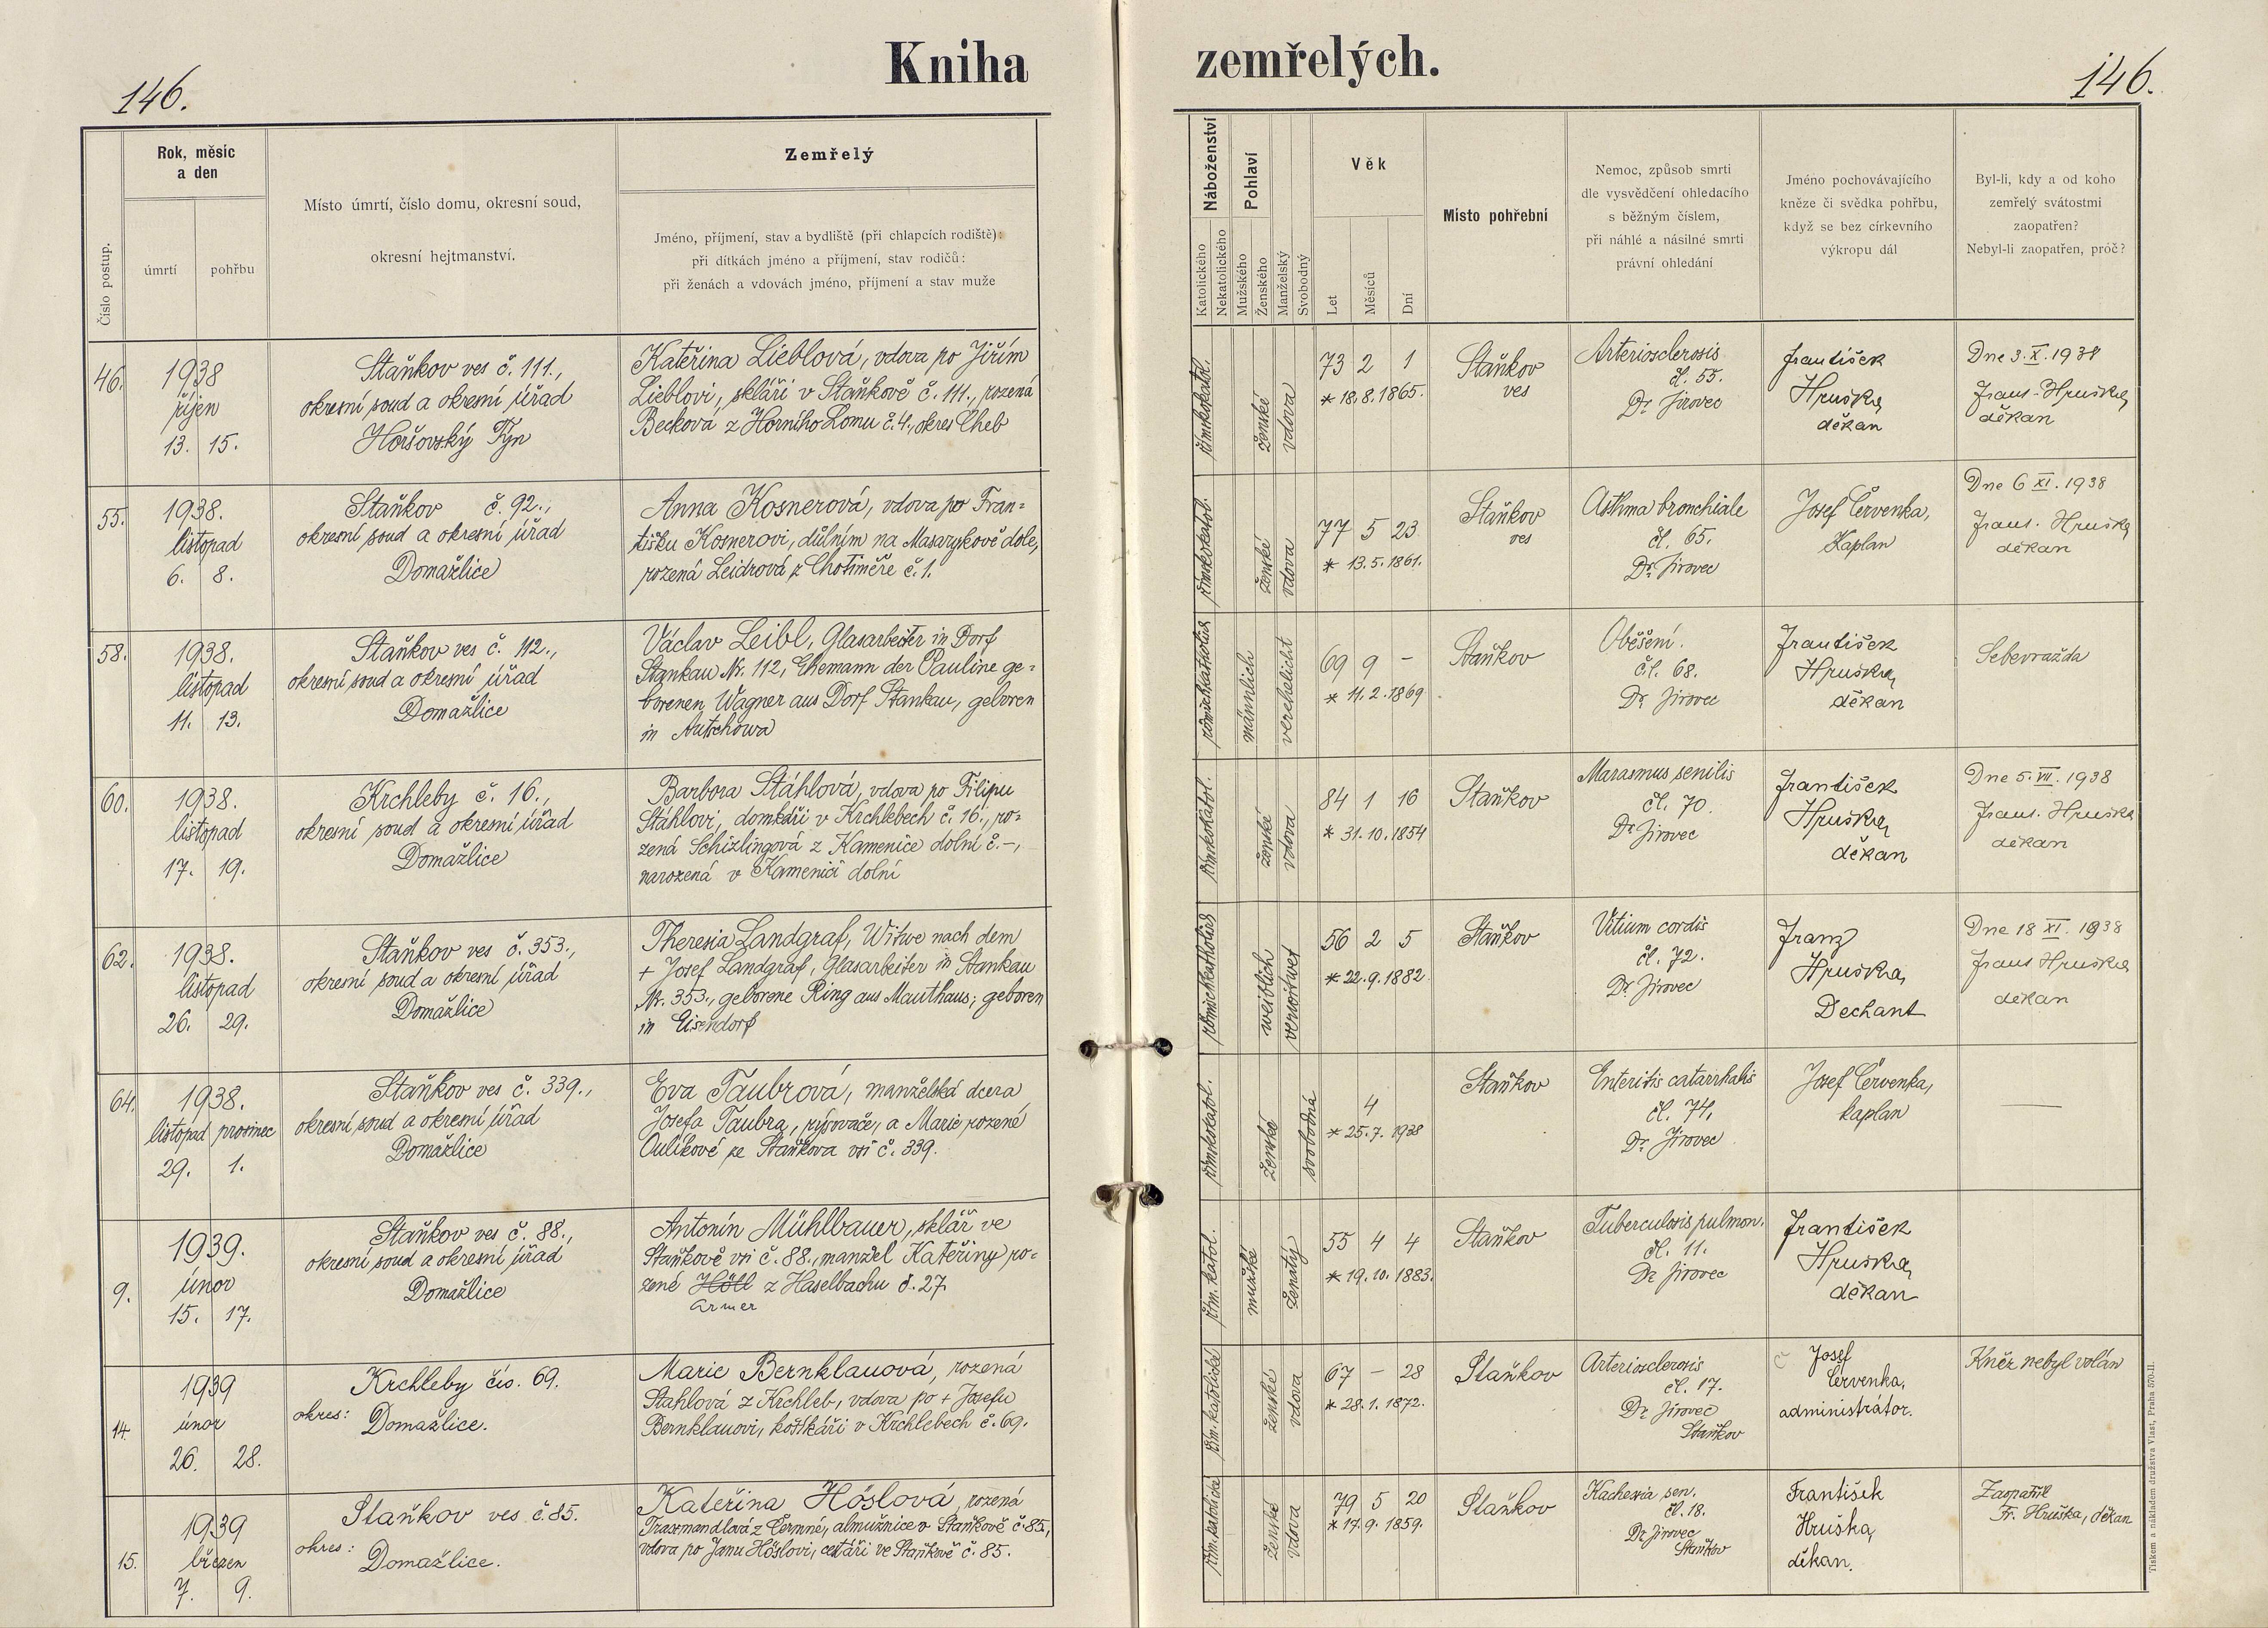 Kniha
zemřelých.
146.
146.
Číslo postup.
Rok, měsíc
a den
úmrtí
pohřbu
Místo úmrtí, číslo domu, okresní soud,
okresní hejtmanství.
Zemřelý
Jméno, příjmení, stav a bydliště (při chlapcích rodiště):
při dítkách jméno a příjmení, stav rodičů:
při ženách a vdovách jméno, příjmení a stav muže
Náboženství
Katolického
Nekatolického
Pohlaví
Mužského
Ženského
Manželský
Svobodný
Věk
Let
Měsíců
Dní
Místo pohřební
Nemoc, způsob smrti
dle vysvědčení ohledacího
s běžným číslem,
při náhlé a násilné smrti
právní ohledání
Jméno pochovávajícího
kněze či svědka pohřbu,
když se bez církevního
výkropu dál
Byl-li, kdy a od koho
zemřelý svátostmi
zaopatřen?
Nebyl-li zaopatřen, próč?
46.
1938
říjen
13. 15.
Staňkov ves č. 111.,
okresní soud a okresní úřad
Horšovský Týn
Kateřina Lieblová, vdova po Jiřím
Lieblovi, skláři v Staňkově č. 111., rozená
Becková z Horního Lomu č. 4., okres Cheb
římskokatol.
ženské
vdova
73 2 1
* 18.8.1865.
Staňkov
ves
Arteriosclerosis
čl. 55.
Dr Jirovec
František
Hruška,
děkan
Dne 3.X.1938
Frant. Hruška,
děkan
55.
1938.
listopad
6. 8.
Staňkov č. 92.,
okresní soud a okresní úřad
Domažlice
Anna Kosnerová, vdova po Fran=
tišku Kosnerovi, důlním na Masarykově dole,
rozená Leidrová z Chotiměře č. 1.
římskokatol.
ženské
vdova
77 5 23
* 13.5.1861.
Staňkov
ves
Asthma bronchiale
čl. 65.
Dr. Jirovec
Josef Červenka,
kaplan
Dne 6 XI. 1938
Frant. Hruška
děkan
58.
1938.
listopad
11. 13.
Staňkov ves č. 112.,
okresní soud a okresní úřad
Domažlice
Václav Leibl, Glasarbeiter in Dorf
Stankau Nr. 112, Ehemann der Pauline ge=
borenen Wagner aus Dorf Stankau, geboren
in Autschowa
römischkatholisch
männlich
verehelicht
69 9 –
* 11.2.1869
Staňkov
Oběšení.
čl. 68.
Dr Jirovec
František
Hruška,
děkan
Sebevražda
60.
1938.
listopad
17. 19.
Krchleby č. 16.,
okresní soud a okresní úřad
Domažlice
Barbora Stáhlová, vdova po Filipu
Stáhlovi, domkáři v Krchlebech č. 16., ro=
zená Schizlingová z Kamenice dolní č. –,
narozená v Kamenici dolní
římskokatol.
ženské
vdova
84 1 16
* 31.10.1854
Staňkov
Marasmus senilis
čl. 70.
Dr Jirovec
František
Hruška,
děkan
Dne 5. VII. 1938
Frant. Hruška
děkan
62.
1938.
listopad
26. 29.
Staňkov ves č. 353.,
okresní soud a okresní úřad
Domažlice
Theresia Landgraf, Witwe nach dem
+ Josef Landgraf, Glasarbeiter in Stankau
Nr. 353., geborene Ring aus Mauthaus, geboren
in Eisendorf
römischkatholisch
weiblich
verwitwet
56 2 5
* 22.9.1882.
Staňkov
Vitium cordis
čl. 72.
Dr Jirovec
Franz
Hruška,
Dechant
Dne 18 XI. 1938
Frant Hruška
děkan
64.
1938.
listopad prosinec
29. 1.
Staňkov ves č. 339.,
okresní soud a okresní úřad
Domažlice
Eva Taubrová, manželská dcera
Josefa Taubra, rýsovače, a Marie rozené
Oulíkové ze Staňkova vsi č. 339.
římskokatol.
ženské
svobodná
4
* 25.7. 1938
Staňkov
Enteritis catarrhalis
čl. 74,
Dr. Jirovec
Josef Červenka,
kaplan
—
9.
1939.
únor
15. 17.
Staňkov ves č. 88.,
okresní soud a okresní úřad
Domažlice
Antonín Mühlbauer, sklář ve
Staňkově vsi č. 88., manžel Kateřiny ro=
zené Höll z Haselbachu č. 27.
Armer
řím. katol.
mužské
ženatý
55 4 4
* 19.10. 1883.
Staňkov
Tuberculosis pulmon.
čl. 11.
Dr Jirovec
František
Hruška,
děkan
14.
1939
únor
26. 28.
Krchleby čís. 69.
okres:
Domažlice.
Marie Bernklauová, rozená
Stahlová z Krchleb, vdova po + Josefu
Bernklauovi, košíkáři v Krchlebech č. 69.
řím. katolické
ženské
vdova
67 – 28
* 28.1.1872.
Staňkov
Arteriosclerosis
čl. 17.
Dr. Jirovec
Staňkov
Josef
Červenka,
administrátor.
Kněz nebyl volán
15.
1939
březen
7. 9.
Staňkov ves č. 85.
okres:
Domažlice.
Kateřina Höslová, rozená
Trassmandlová z Čermné, almužnice v Staňkově č. 85,
vdova po Janu Höslovi, cestáři ve Staňkově č. 85.
řím. katolické
ženské
vdova
79 5 20
* 17.9.1859.
Staňkov
Kachexia sen.
čl. 18.
Dr Jirovec
Staňkov
František
Hruška,
děkan.
Zaopatřil
Fr. Hruška, děkan
Tiskem a nákladem družstva Vlast, Praha 570-II.